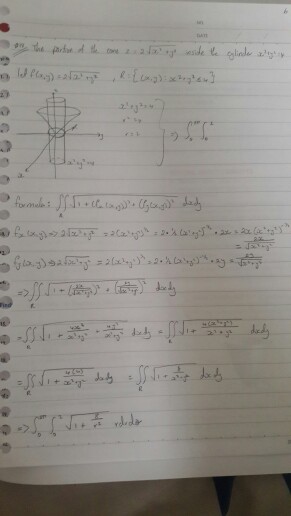 the portion of the cone z = 2√x²+y² inside the cylinder x²+y²=4
let f(x,y)=2√x²+y² , R: {(x,y): x²+y²≤4}
x²+y²=4
r²=4
r=2
⇒ ∫₀ ∫₀²
x²+y²=4
formula: ∬_R √1+(fx(x,y))²+(fy(x,y))² dxdy
fx(x,y) ⇒ 2√x²+y² = 2(x²+y²)^½ = 2·½(x²+y²)^-½ · 2x = 2x(x²+y²)^-½
= 2x/√x²+y²
fy(x,y) ⇒ 2√x²+y² = 2(x²+y²)^½ = 2·½(x²+y²)^-½ · 2y = 2y/√x²+y²
⇒ ∬_R √1+(2x/√x²+y²)²+(2y/√x²+y²)² dxdy
= ∬_R √1+ 4x²/x²+y² + 4y²/x²+y² dxdy = ∬_R √1+ 4(x²+y²)/x²+y²
= ∬_R √1+ 4(4)/x²+y² dxdy = ∬_R √1+ /x²+y² dxdy
⇒ ∫₀ ∫₀² √1+ /r² rdrdθ